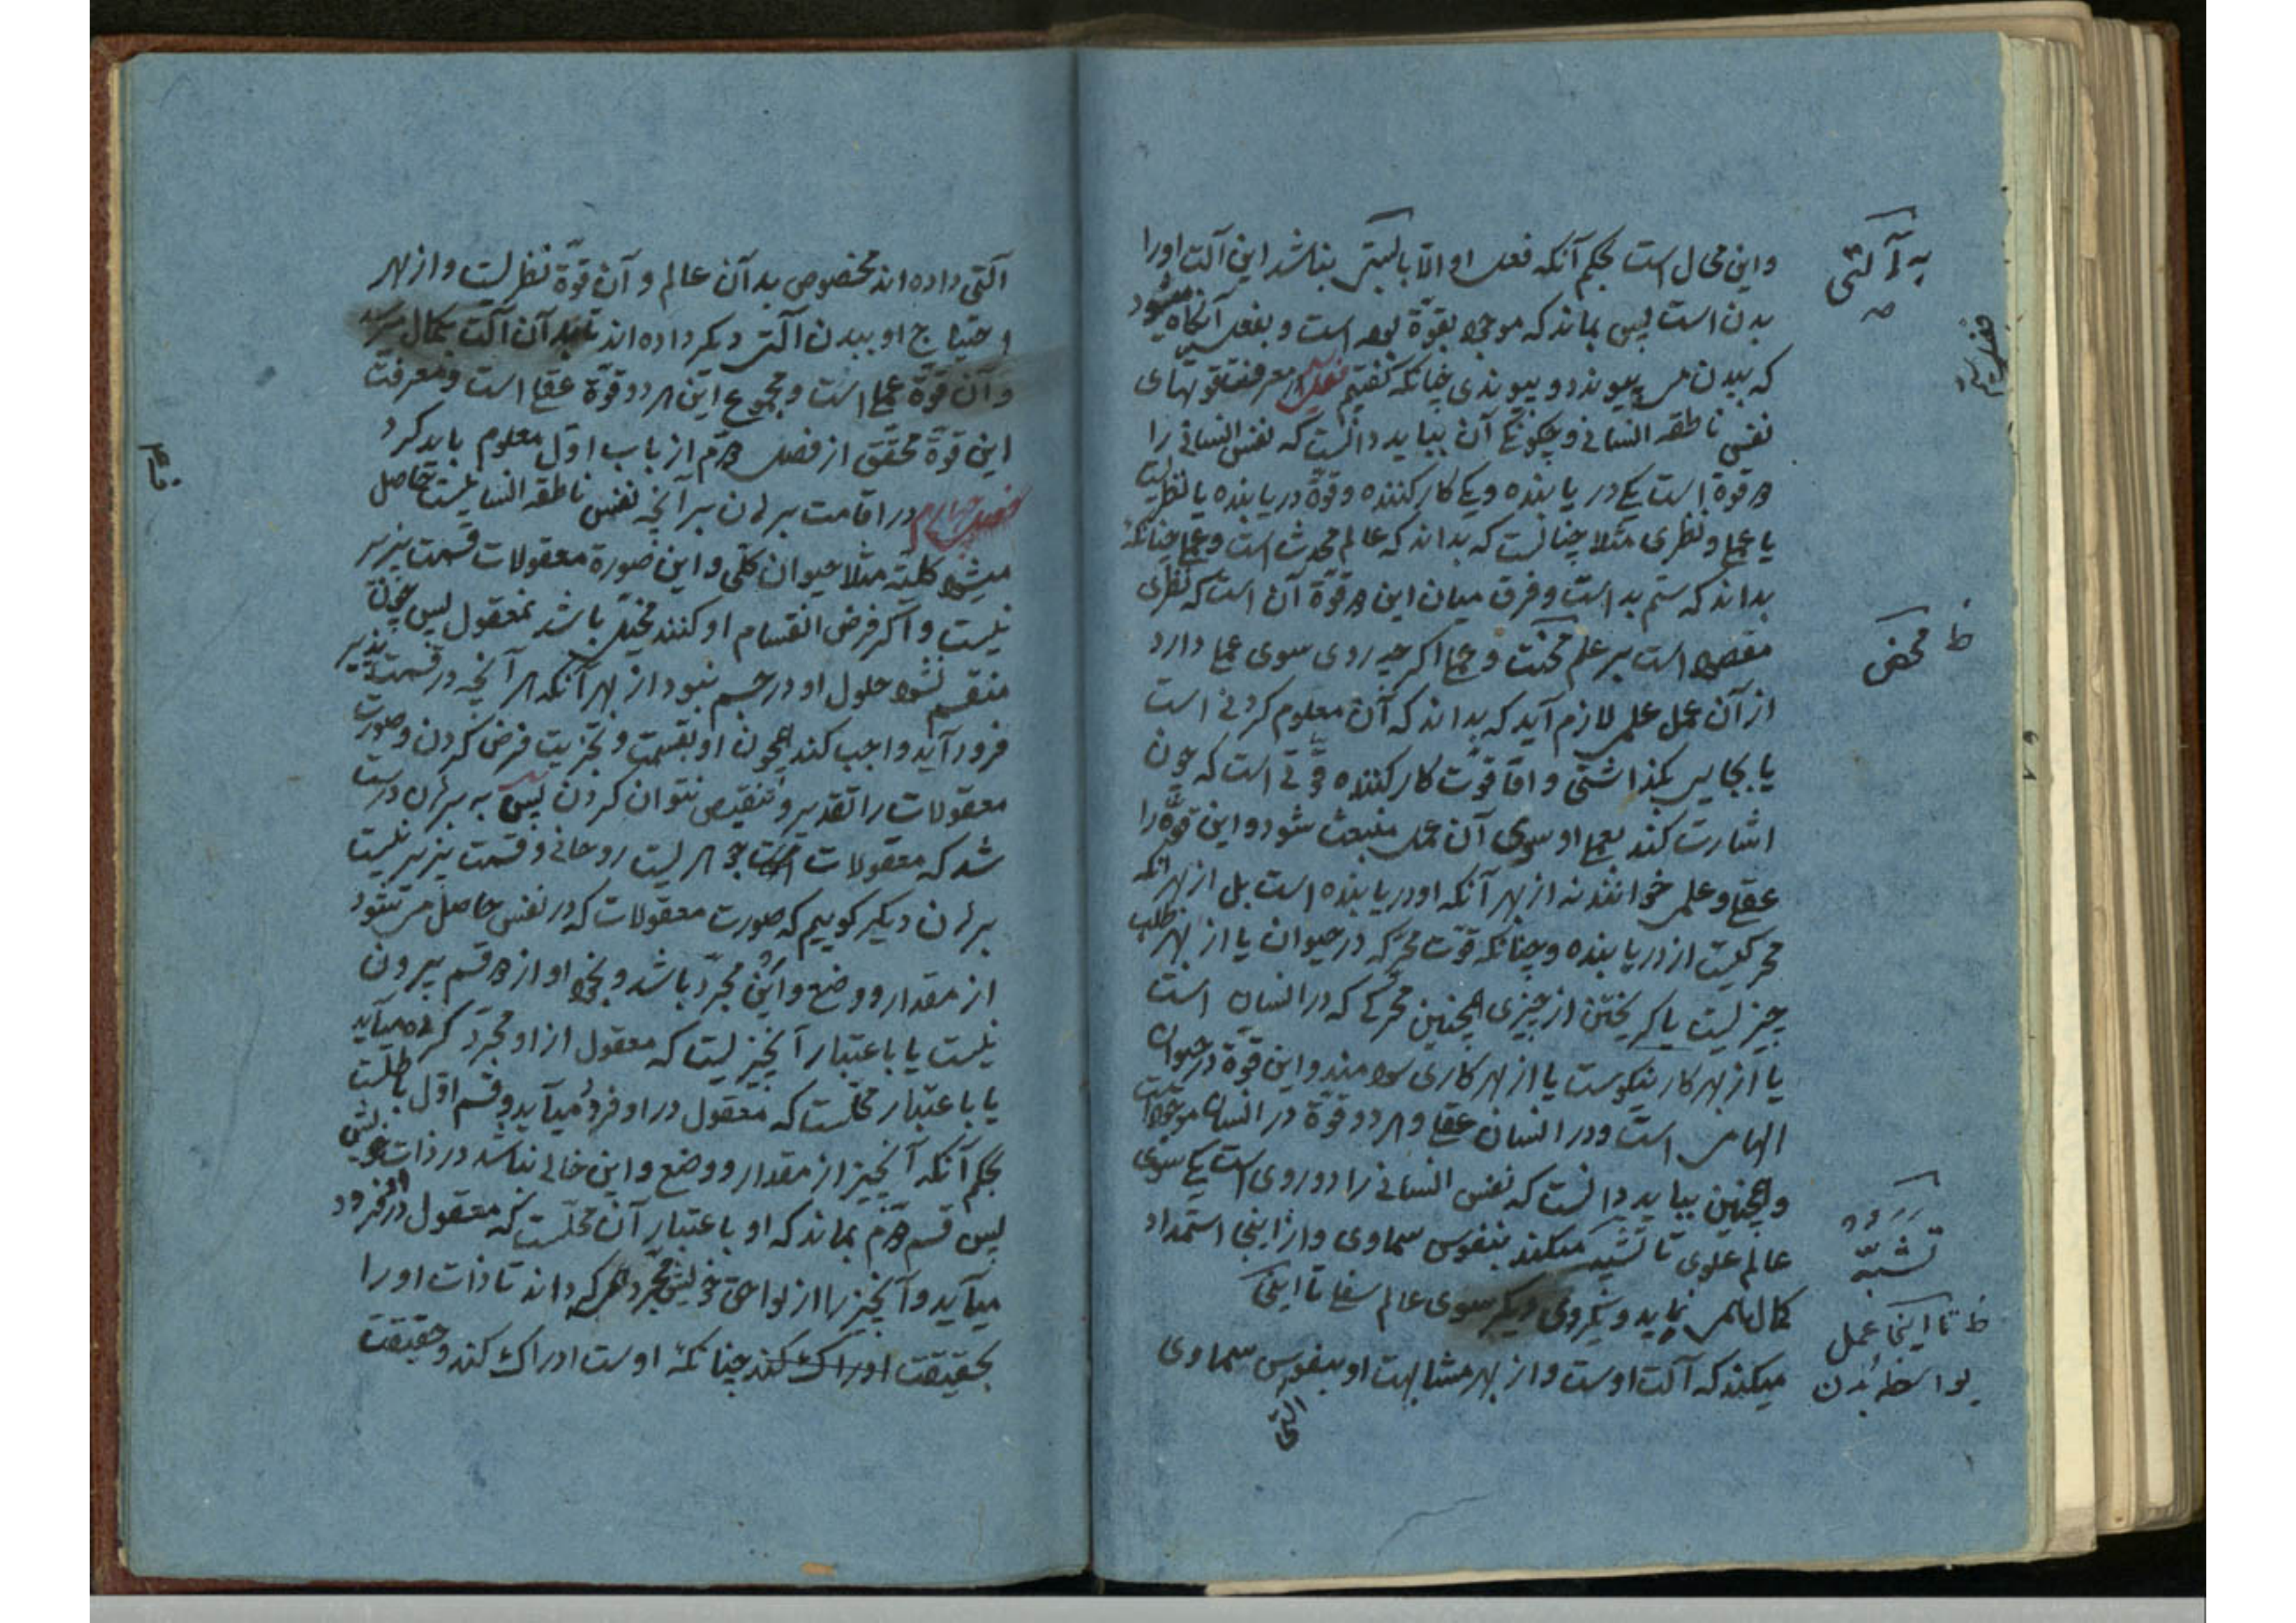 واین محال است بحکم آنکه فعل او الا بالتی نباشد این آلت اورا
بدن است پس بماند که موجود بقوة بوده است و بفعل آنگاه میشود
که ببدن می پیوندد و پیوندی چنانکه گفتیم فصل در معرفت قوتهای
نفس ناطقه انسانی و چگونگی آن بباید دانست که نفس انسانی را
دو قوة است یکی دریابنده ویکی کارکننده وقوة دریابنده یا نظریست
یا عملی ونظری مثلا چنانست که بداند که عالم محدث است وعملی چنانکه
بداند که ستم بد است وفرق میان این دو قوة آن است که نظری
مقصود است بر علم محنت وعملی اگرچه روی سوی عمل دارد
از آن عمل علمی لازم آید که بداند که آن معلوم کردنی است
یا بجای بگذاشتنی واما قوت کارکننده قوتی است که چون
اشارت کند بعمل او سوی آن عمل منبعث شود واین قوة را
عقلی وعلمی خوانند نه از بهر آنکه او دریابنده است بل از بهر آنکه
محرکیست از دریابنده وچنانکه قوت محرکه در حیوان یا از بهر طلب
چیزیست یا گریختن از چیزی همچنین محرکی که در انسان است
یا از بهر کار نیکوست یا از بهر کاری سودمند واین قوة در حیوان
الهامی است ودر انسان عقلی وهر دو قوة در انسان موجود است
وهمچنین بباید دانست که نفس انسانی را دو روی است یکی سوی
عالم علوی تا تشبه میکند بنفوس سماوی واز اینجا استمداد
کمال می نماید ویکروی دیگر سوی عالم سفلی تا اینکه
میکند که آلت اوست واز بهر مشابهت او بنفوس سماوی
آلتی
به آلتی
صه
فصل سیم
ظ محض
تشبه
ظ تا اینجا عمل
بواسطه بدن
آلتی داده اند مخصوص بدآن عالم وآن قوة نظریست واز بهر
احتیاج او ببدن آلتی دیگر داده اند تا بدآن آلت بکمال رسد
وآن قوة عملی است ومجموع این هر دو قوة عقلی است ومعرفت
این قوة محقق از فصل دوم از باب اول معلوم باید کرد
فصل چهارم در اقامت برهان برآنچه نفس ناطقه انسانیست حاصل
میشود کلیة مثلا حیوان کلی واین صورة معقولات قسمت پذیر
نیست واگر فرض انقسام او کنند مخیل باشد نمعقول پس چون
منقسم نشود حلول او در جسم نبود از بهر آنکه هر آنچه در قسمت پذیر
فرود آید واجب کند همچون او بقسمت وتجزیت فرض کردن وصورت
معقولات را تقدیر وتنقیص نتوان کردن پس به برهان درست
شد که معقولات جوهریست روحانی وقسمت پذیر نیست
برهان دیگر گوییم که صورت معقولات که در نفس حاصل می شود
از مقدار ووضع واین مجرد باشد وتجرد او از دو قسم بیرون
نیست یا باعتبار آنچیزیست که معقول از او مجرد کرده میآید
یا باعتبار محلست که معقول در او فرود میآید وقسم اول باطلست
بحکم آنکه آنچیز از مقدار ووضع واین خالی نباشد در ذات خویش
پس قسم دوم بماند که او باعتبار آن محلست که معقول در او فرود
میآید وآنچیز را از لواحق خویش مجرد کرداند تا ذات اورا
بحقیقت چنانکه اوست ادراک کند وحقیقت